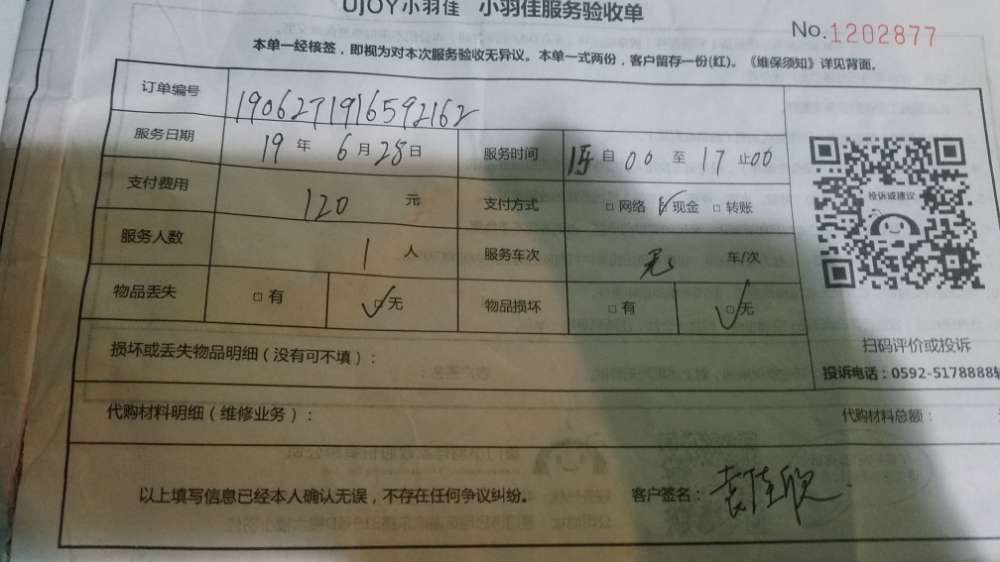 UJOY小羽佳 小羽佳服务验收单
No.1202877
本单一经核签，即视为对本次服务验收无异议。本单一式两份，客户留存一份(红)。《维保须知》详见背面。
订单编号 1906271916592162
服务日期 19 年 6 月 28 日 服务时间 15 自 00 至 17 止 00
支付费用 120 元 支付方式 □网络 ☑现金 □转账
服务人数 1 人 服务车次 无 车/次
物品丢失 □有 ☑无 物品损坏 □有 ☑无
投诉或建议
扫码评价或投诉
投诉电话：0592-5178888
损坏或丢失物品明细（没有可不填）：
代购材料明细（维修业务）： 代购材料总额：
以上填写信息已经本人确认无误，不存在任何争议纠纷。 客户签名：袁佳欣